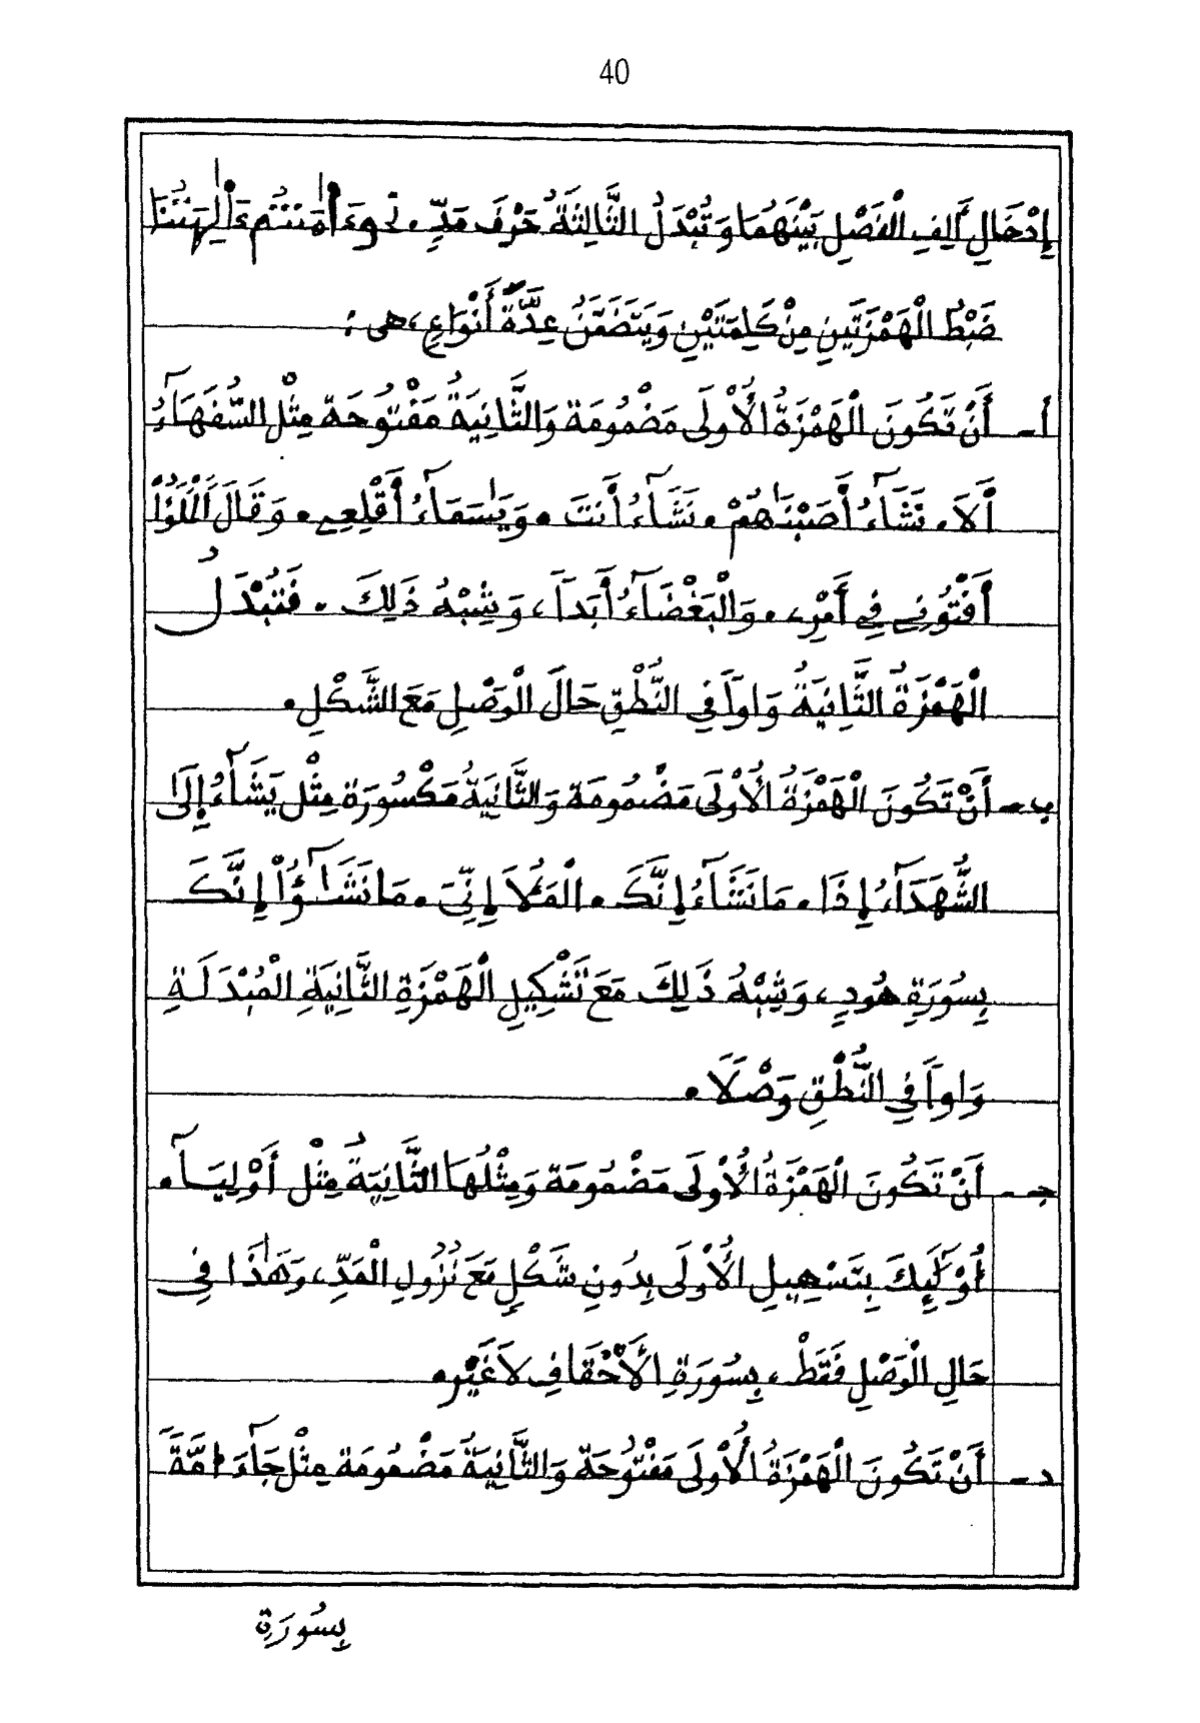 40
إِدْخَالِ أَلِفِ الْفَصْلِ بَيْنَهُمَا وَتُبْدَلُ الثَّالِثَةُ حَرْفَ مَدٍّ. نحو ءَاٰمَنتُم ءَاٰلِهَتُنَا
ضَبْطُ الْهَمْزَتَيْنِ مِنْ كَلِمَتَيْنِ وَيَتَضَمَّنُ عِدَّةَ أَنْوَاعٍ، هى :
أ - أَنْ تَكُونَ الْهَمْزَةُ الْأُوْلَى مَضْمُومَة وَالثَّانِيَةُ مَفْتُوحَة مِثْل السُّفَهَآءُ
أَلَا. نَشَآءُ أَصَبْنَاهُمْ. نَشَآءُ أَنتَ. وَيَٰسَمَآءُ أَقْلِعِے. وَقَالَ اَلْمَلَؤُاْ
أَفْتُونِے فِے أَمْرِے. وَالْبَغْضَآءُ أَبَداً، وَشِبْهُ ذَلِكَ. فَتُبْدَلُ
الْهَمْزَةُ الثَّانِيَةُ وَاواً فِي النُّطْقِ حَالَ الْوَصْلِ مَعَ الشَّكْلِ.
ب - أَنْ تَكُونَ الْهَمْزَةُ الْأُوْلَى مَضْمُومَة وَالثَّانِيَةُ مَكْسُورَة مِثْل يَشَآءُ إِلَىٰ
الشُّهَدَآءُ إِذَا. مَا نَشَآءُ إِنَّكَ. الْمَلَأُ إِنِّيَ. مَا نَشَٰٓؤُاْ إِنَّكَ
بِسُورَةِ هُودٍ، وَشِبْهُ ذَلِكَ مَعَ تَشْكِيلِ الْهَمْزَةِ الثَّانِيَةِ الْمُبْدَلَةِ
وَاواً فِي النُّطْقِ وَصْلًا.
جـ - أَنْ تَكُونَ الْهَمْزَةُ الْأُوْلَى مَضْمُومَة وَمِثْلُهَا الثَّانِيَةُ مِثْل أَوْلِيَآءُ
أُوْلَٰٓئِكَ بِتَسْهِيلِ الْأُوْلَى بِدُونِ شَكْلٍ مَعَ نُزُولِ الْمَدِّ، وَهَٰذَا فِي
حَالِ الْوَصْلِ فَقَطْ، بِسُورَةِ الْأَحْقَافِ لَا غَيْر.
د - أَنْ تَكُونَ الْهَمْزَةُ الْأُوْلَى مَفْتُوحَة وَالثَّانِيَةُ مَضْمُومَة مِثْل جَآءَ امَّةً
بِسُورَةِ